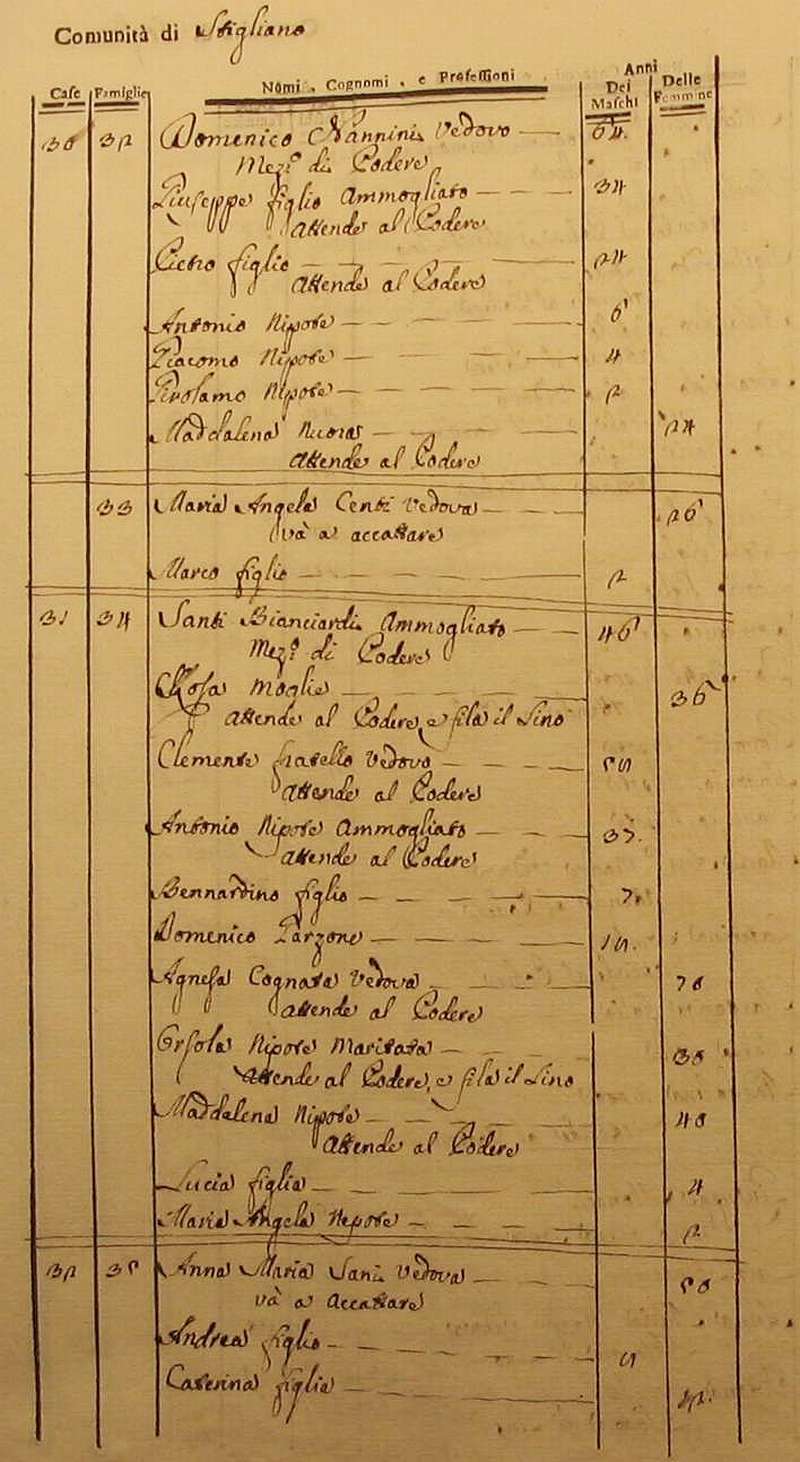 Comunità di Stigliano
Case Famiglie Nomi, Cognomi, e Professioni Anni
Dei Maschi Delle Femmine
30 32 Domenico Vedovo
Mez.º di Podere
Giuseppe figlio Ammogliato 34
Attende al Podere
Checho figlio 24
Attende al Podere
Antonio Nipote 6
Giacomo Nipote 4
Girolamo Nipote 2
Maddalena Nuora 24
Attende al Podere
33 Maria Angela Centi Vedova 26
và a accattare
Marco figlio 2
31 34 Santi Bianciardi Ammogliato 46
Mez.º di Podere
Rosa Moglie 36
Attende al Podere, e fila il Lino
Clemente fratello Vedovo 59
Attende al Podere
Antonio Nipote Ammogliato 37.
Attende al Podere
Bennardino figlio 7.
Domenico Garzone 19.
Agnesa Cognata Vedova 70
Attende al Podere
Orsola Nipote Maritata 30
Attende al Podere, e fila il Lino
Maddalena Nipote 40
Attende al Podere
Lucia figlia 4
Maria Angela Nepote 2
32 35 Anna Maria Santi Vedova 50
và a Accattare
Andrea figlio 9
Caterina figlia 12.